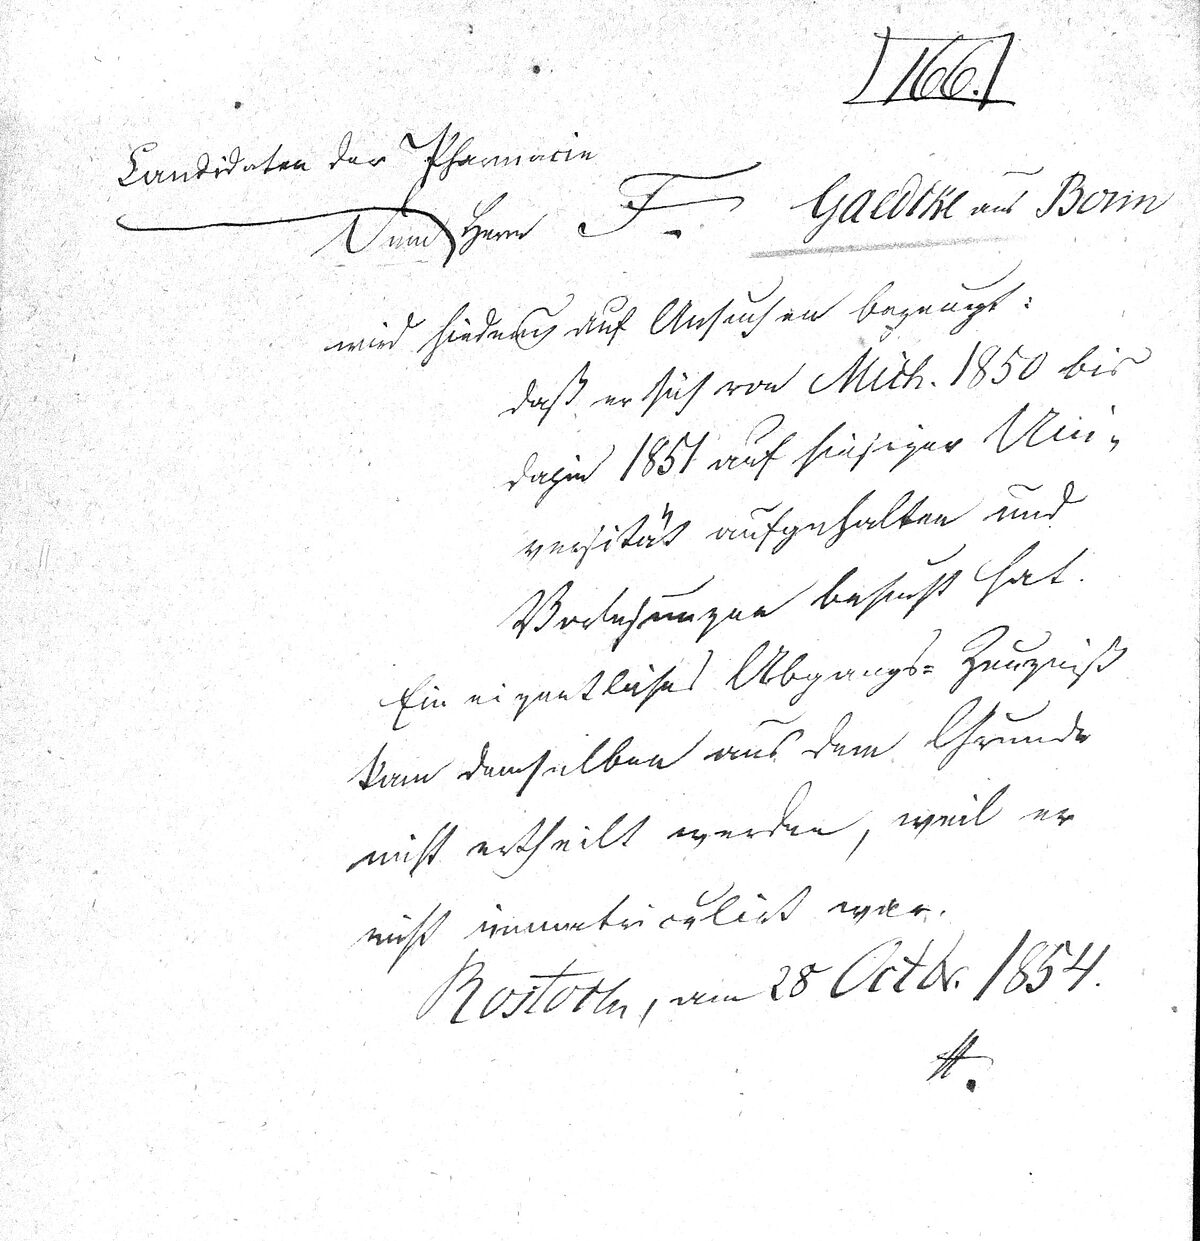 166.
Candidaten der Pharmacie
Dem Herrn F. Gaedtke aus Bonn
wird hiedurch auf Ansuchen bezeugt:
daß er sich von Mich. 1850 bis
dahin 1851 auf hiesiger Uni-
versität aufgehalten und
Vorlesungen besucht hat.
Ein eigentliches Abgangs-Zeugniß
kann demselben aus dem Grunde
nicht ertheilt werden, weil er
nicht immatriculirt war.
Rostock, am 28 Octbr. 1854.